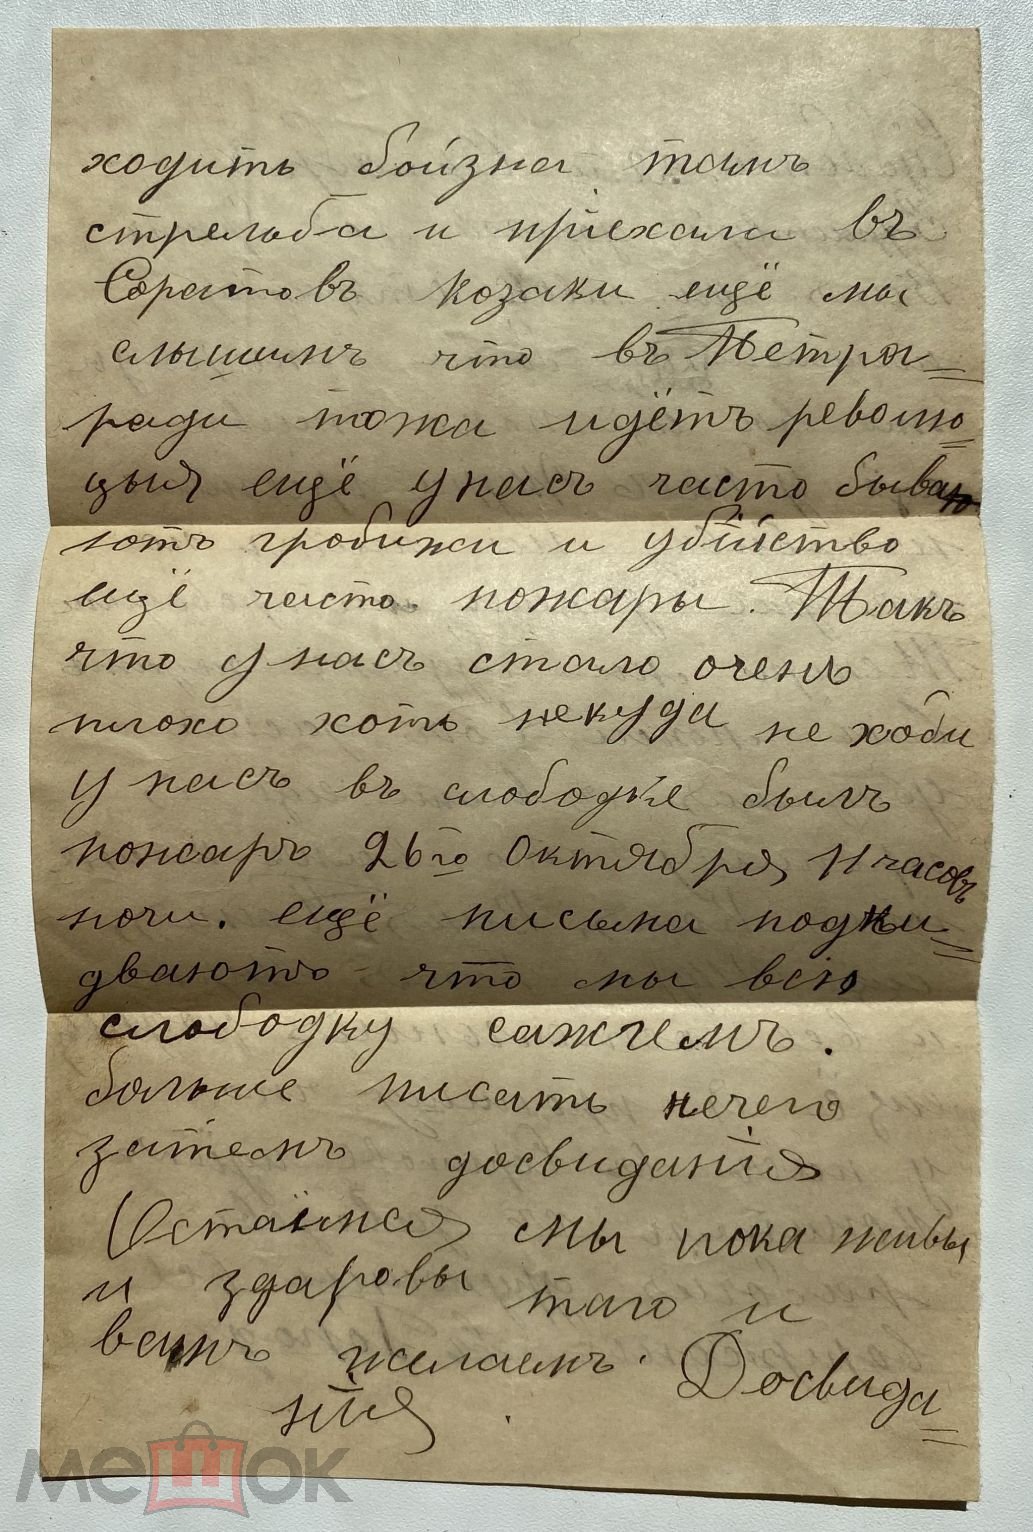 ходить боизна тамъ
стрельба и приехали въ
Соратовъ козаки ещё мы
слышимъ что въ Петра=
ради тожа идётъ револю=
цыя ещё у насъ часто бываю
ютъ гробижи и убійство
ещё часто пожары. Такъ
что у насъ стало очень
плохо хоть некуда не ходи
у насъ въ слободке былъ
пожаръ 26го октября 11 часовъ
ночи. ещё письма подки=
дваютъ что мы всю
слободку сажгемъ.
больше писать нечего
затемъ досвиданія
Остаёмся мы пока живы
и здаровы таго и
вамъ желаемъ. Досвида=
нія.
мешок